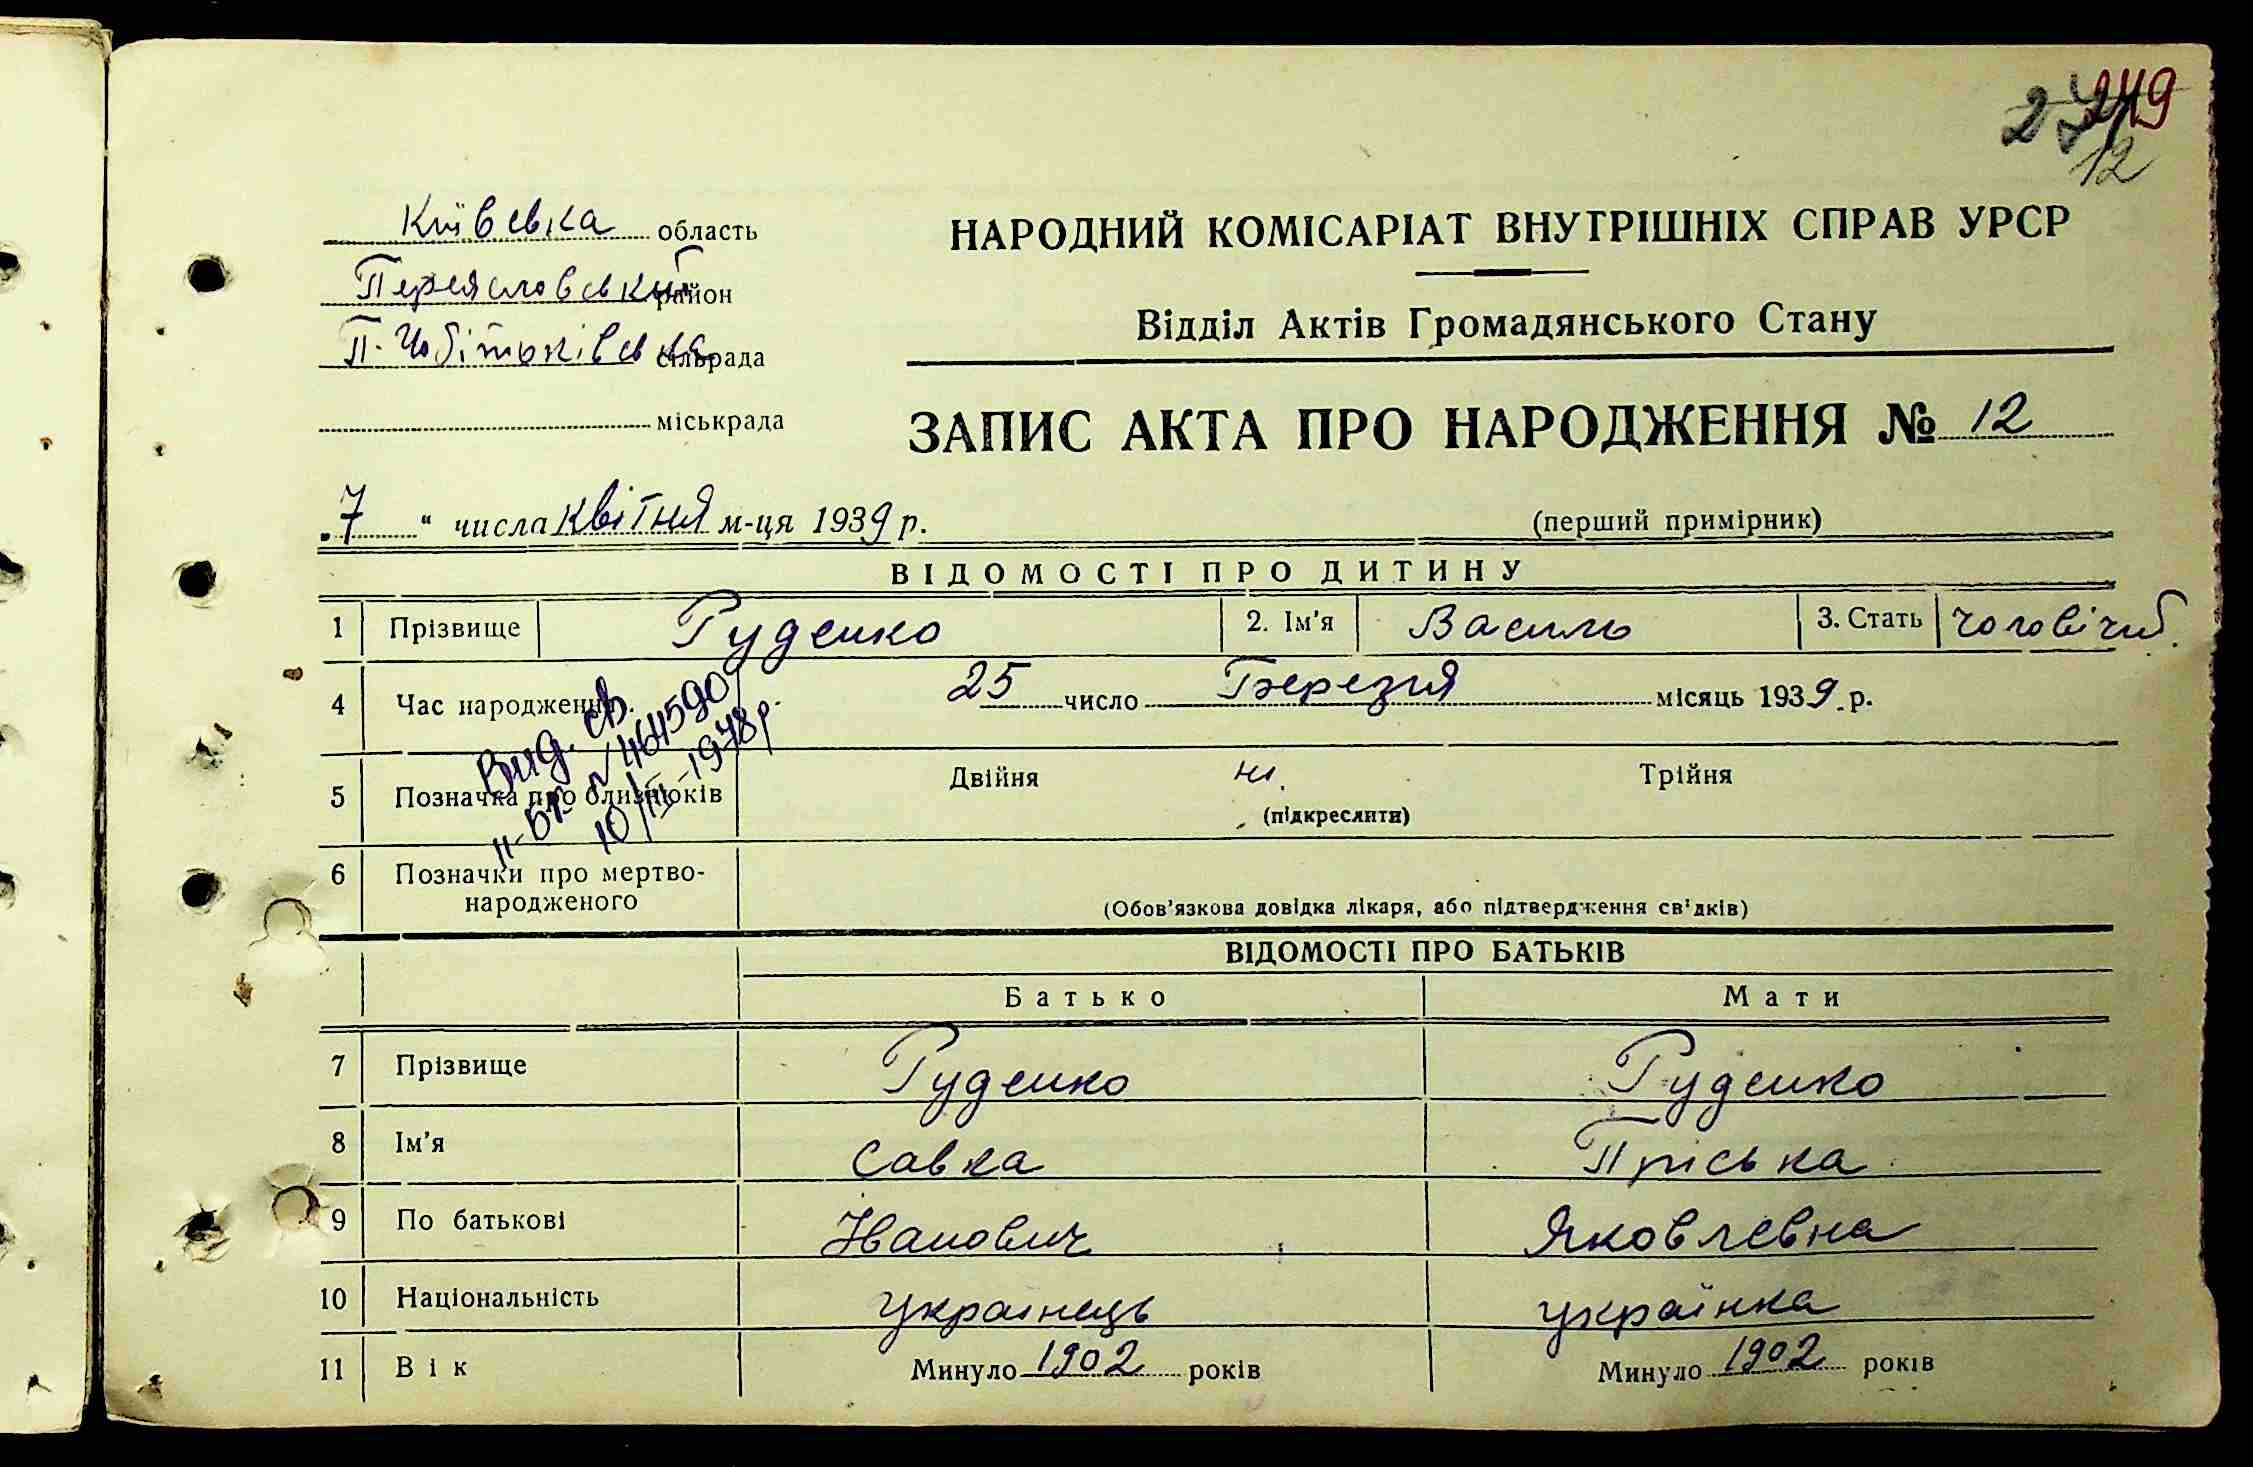 249
12
Київська область
НАРОДНИЙ КОМІСАРІАТ ВНУТРІШНІХ СПРАВ УРСР
Переясловський район
Відділ Актів Громадянського Стану
П. Чобітьківська сільрада
міськрада
ЗАПИС АКТА ПРО НАРОДЖЕННЯ № 12
„7“ числа квітня м-ця 1939 р.
(перший примірник)
ВІДОМОСТІ ПРО ДИТИНУ
1 Прізвище Руденко 2. Ім'я Василь 3. Стать чоловічий.
4 Час народження. 25 число Березня місяць 1939 р.
Вид. св.
II-БК №464590
10/III-1978р
5 Позначка про близнюків Двійня ні. Трійня
(підкреслити)
6 Позначки про мертво-
народженого
(Обов'язкова довідка лікаря, або підтвердження свідків)
ВІДОМОСТІ ПРО БАТЬКІВ
Батько Мати
7 Прізвище Руденко Руденко
8 Ім'я Савка Пріська
9 По батькові Іванович Яковлевна
10 Національність українець українка
11 Вік Минуло 1902 років Минуло 1902 років